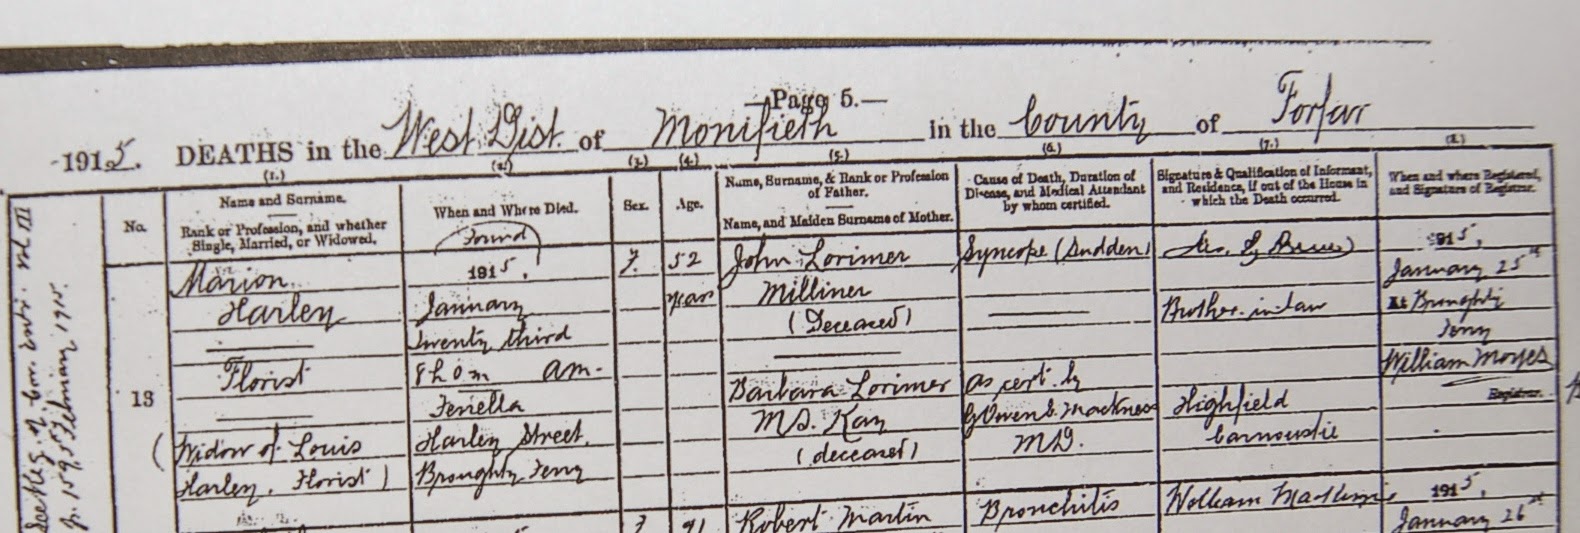 —Page 5.—
1915. DEATHS in the West Dist. of Monifieth in the County of Forfar
(1.) (2.) (3.) (4.) (5.) (6.) (7.) (8.)
No.
Name and Surname.
Rank or Profession, and whether
Single, Married, or Widowed.
When and Where Died.
Sex.
Age.
Name, Surname, & Rank or Profession
of Father.
Name, and Maiden Surname of Mother.
Cause of Death, Duration of
Disease, and Medical Attendant
by whom certified.
Signature & Qualification of Informant,
and Residence, if out of the House in
which the Death occurred.
When and where Registered,
and Signature of Registrar.
13
Marion
Harley
Florist
(Widow of Louis
Harley, Florist)
Found
1915,
January
Twenty third
8 h 0 m AM.
Fenella
Harley Street.
Broughty Ferry
F.
52
years
John Lorimer
Milliner
(Deceased)
Barbara Lorimer
M.S. Kay
(deceased)
Syncope (Sudden)
As cert. by
M.D.
Brother-in-law
Highfield
Carnoustie
1915,
January 25th
At Broughty
Ferry
William Moyes
Registrar.
Robert Martin
Bronchitis
William
1915,
January 26th